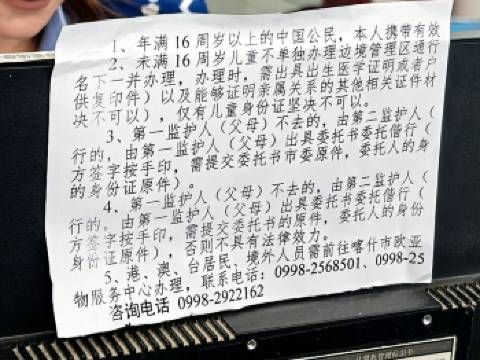 1、年满16周岁以上的中国公民，本人携带有效
2、未满16周岁儿童不单独办理边境管理区通行
名下一并办理，办理时，需出具出生医学证明或者户
供复印件）以及能够证明亲属关系的其他相关证件材
决不可以），仅有儿童身份证坚决不可以。
3、第一监护人（父母）不去的，由第二监护人（
行的，由第一监护人（父母）出具委托书委托偕行（
方签字按手印，需提交委托书市委原件，委托人的身
的身份证原件）。
4、第一监护人（父母）不去的，由第二监护人（
行的，由第一监护人（父母）出具委托书委托偕行（
方签字按手印，需提交委托书的原件，委托人的身份
身份证原件），否则不具有法律效力。
5、港、澳、台居民、境外人员需前往喀什市欧亚
物服务中心办理，联系电话：0998-2568501、0998-25
咨询电话 0998-2922162